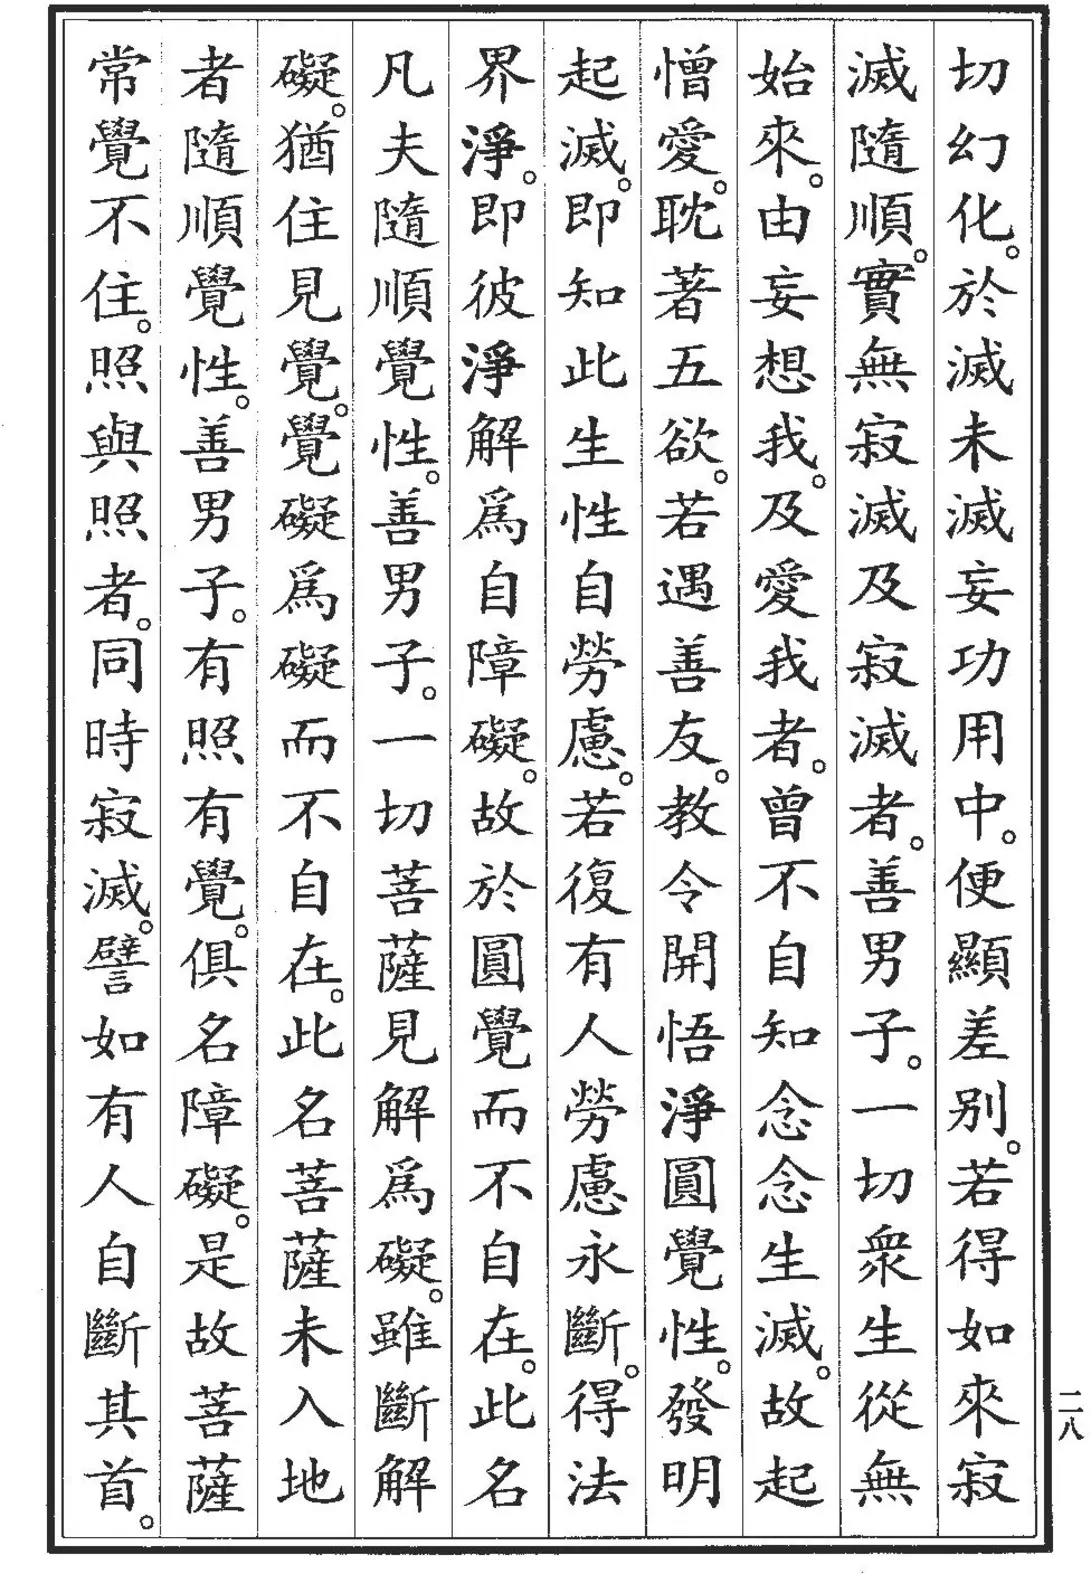 切幻化。於滅未滅妄功用中。便顯差別。若得如來寂
滅隨順。實無寂滅及寂滅者。善男子。一切衆生從無
始來。由妄想我。及愛我者。曾不自知念念生滅。故起
憎愛。耽著五欲。若遇善友。教令開悟淨圓覺性。發明
起滅。即知此生性自勞慮。若復有人勞慮永斷。得法
界淨。即彼淨解爲自障礙。故於圓覺而不自在。此名
凡夫隨順覺性。善男子。一切菩薩見解爲礙。雖斷解
礙。猶住見覺。覺礙爲礙而不自在。此名菩薩未入地
者隨順覺性。善男子。有照有覺。俱名障礙。是故菩薩
常覺不住。照與照者。同時寂滅。譬如有人自斷其首。
二八